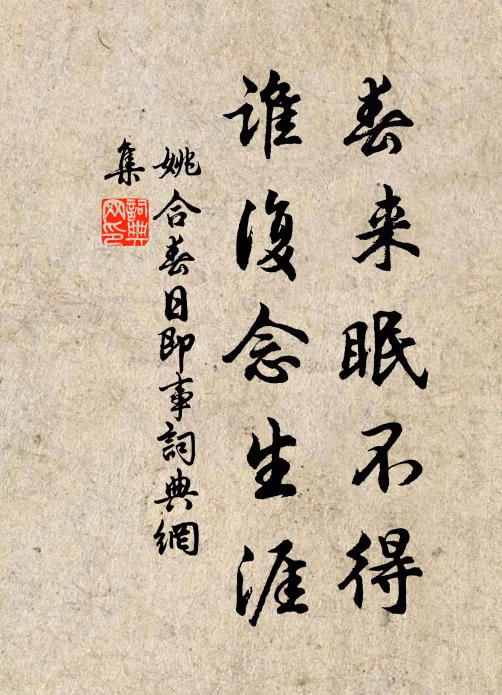 春来眠不得
谁復念生涯
姚合春日即事詞典網
集
詞典网印